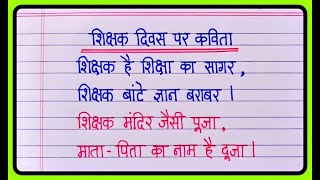 शिक्षक दिवस पर कविता
शिक्षक है शिक्षा का सागर,
शिक्षक बांटे ज्ञान बराबर ।
शिक्षक मंदिर जैसी पूजा,
माता-पिता का नाम है दूजा ।